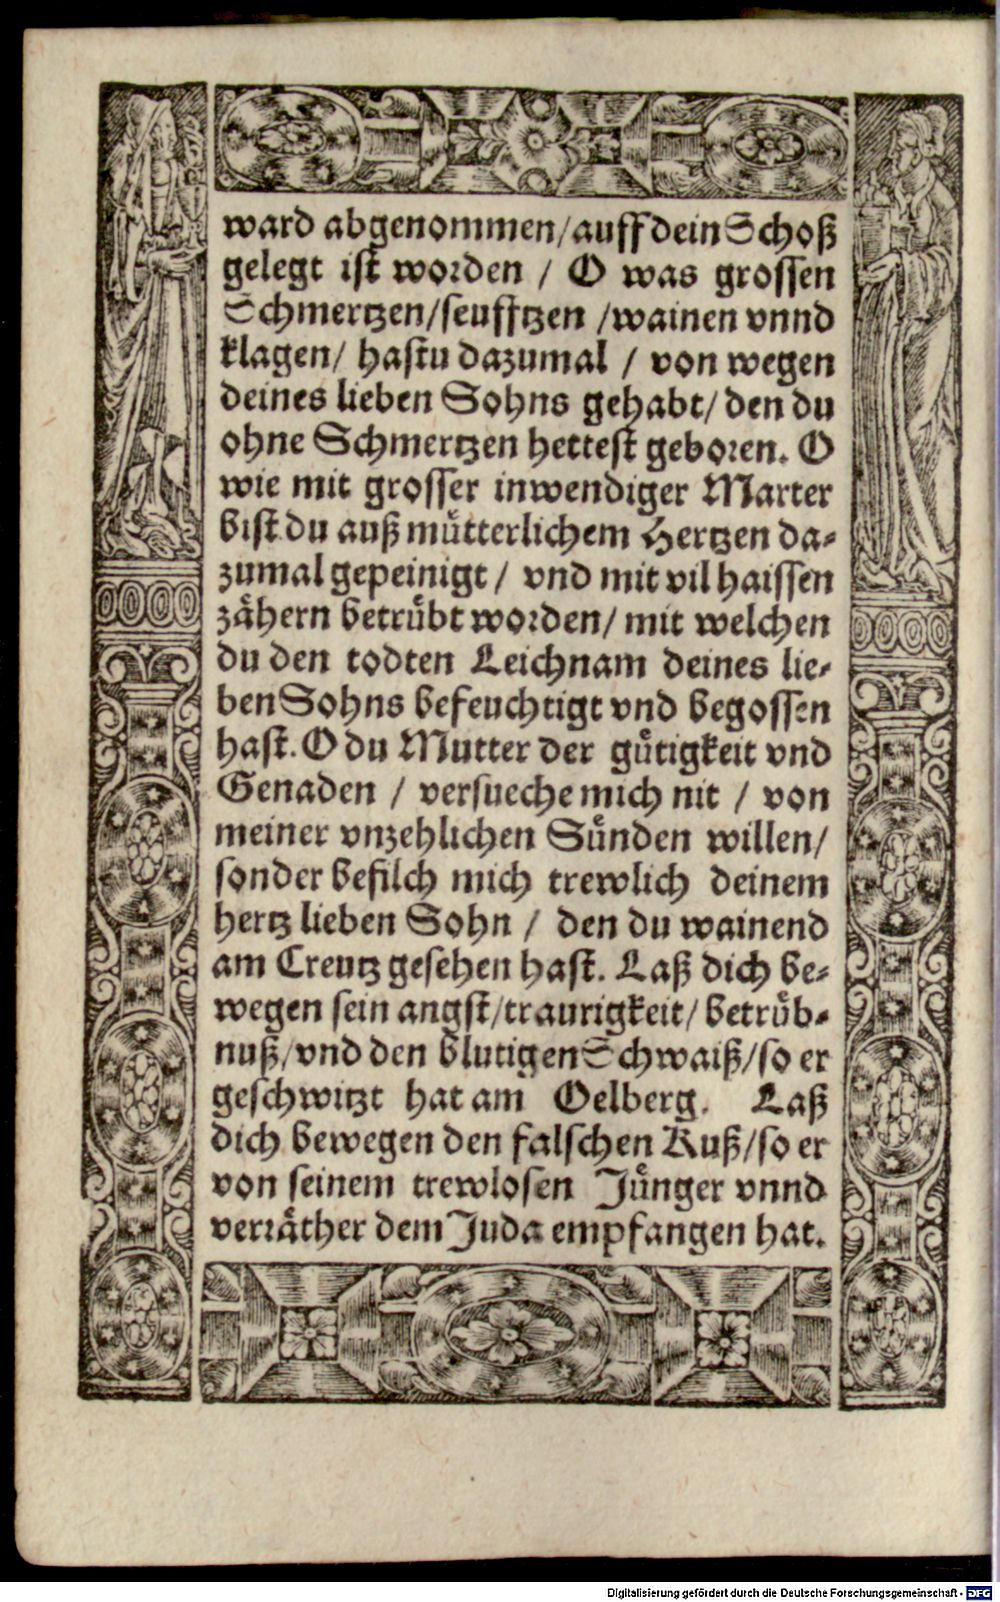 ward abgenommen/auff dein Schoß
gelegt ist worden / O was grossen
Schmertzen/seufftzen /wainen vnnd
klagen/ hastu dazumal / von wegen
deines lieben Sohns gehabt/ den du
ohne Schmertzen hettest geboren. O
wie mit grosser inwendiger Marter
bist du auß mütterlichem Hertzen da-
zumal gepeinigt / vnd mit vil haissen
zähern betrübt worden/ mit welchen
du den todten Leichnam deines lie-
ben Sohns befeuchtigt vnd begossen
hast. O du Mutter der gütigkeit vnd
Genaden / versueche mich nit / von
meiner vnzehlichen Sünden willen/
sonder befilch mich trewlich deinem
hertz lieben Sohn / den du wainend
am Creutz gesehen hast. Laß dich be-
wegen sein angst/traurigkeit/ betrüb-
nuß/vnd den blutigen Schwaiß/so er
geschwitzt hat am Oelberg. Laß
dich bewegen den falschen Kuß/so er
von seinem trewlosen Jünger vnnd
verräther dem Juda empfangen hat.
Digitalisierung gefördert durch die Deutsche Forschungsgemeinschaft - DFG